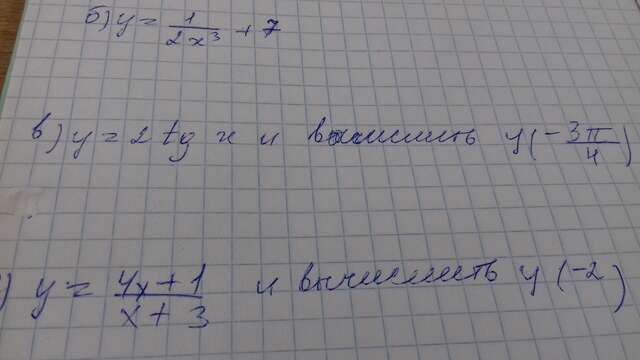 б) y = 1/(2x³) + 7
в) y = 2 tg x и вычислить y(-3π/4)
) y = (4x+1)/(x+3) и вычислить y(-2)